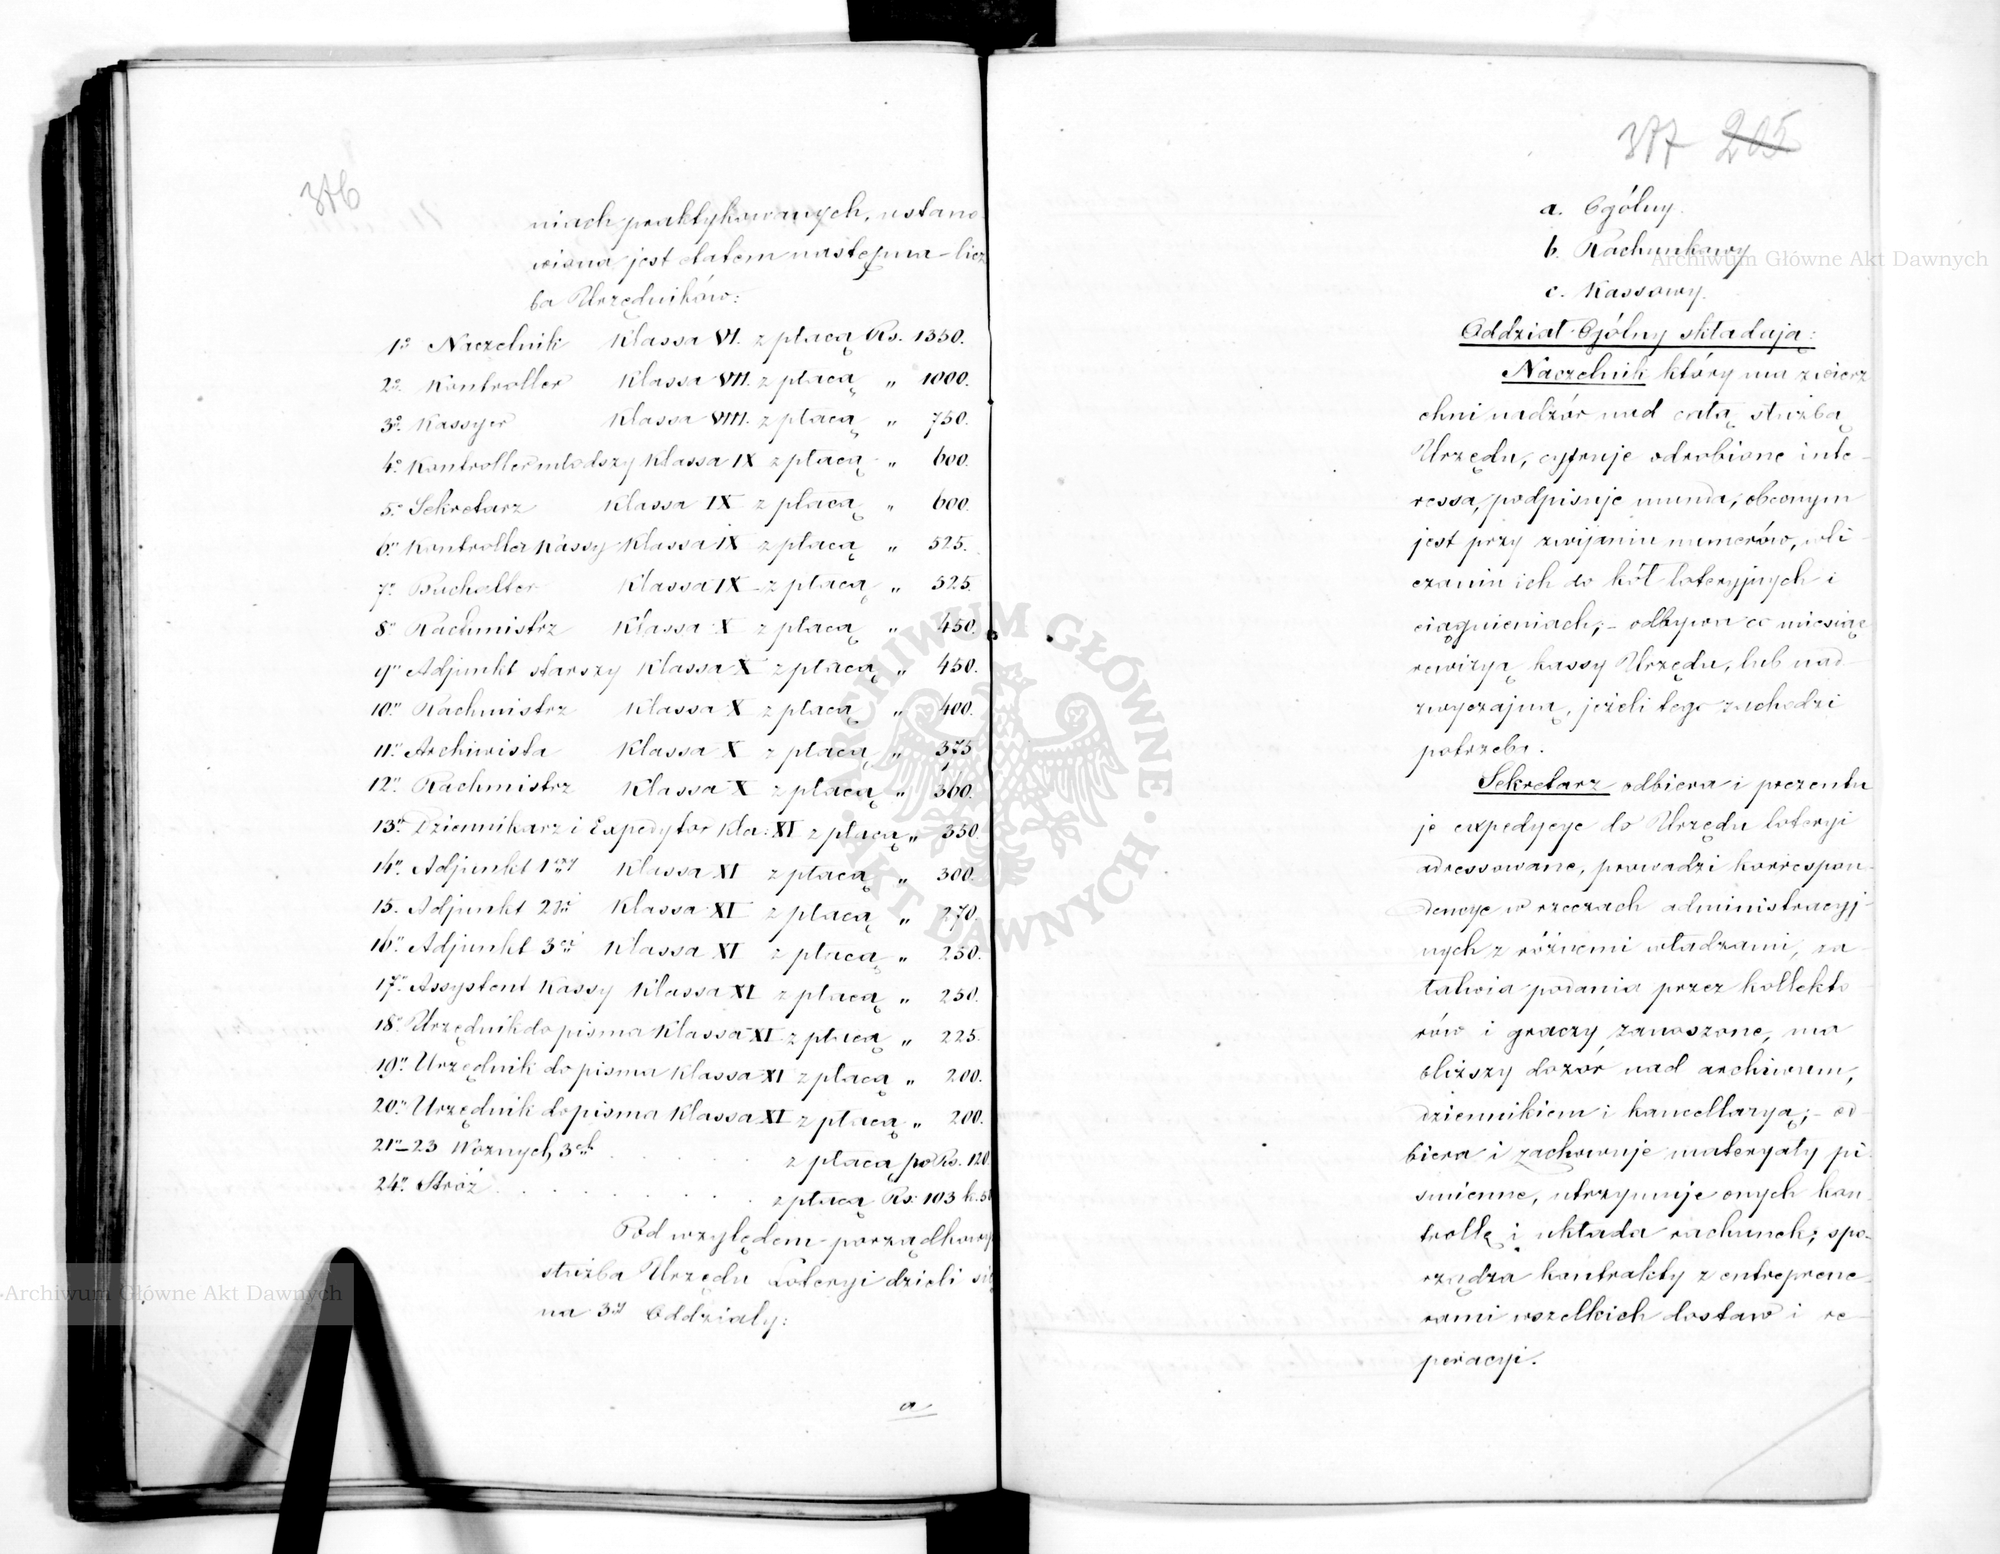 376
niach praktykowanych, ustano-
wiona jest etatem następna licz
ba Urzędników:
1o Naczelnik Klassa VI. z płacą Rs. 1350.
2o Kontroller Klassa VII. z płacą „ 1000.
3o Kassyer Klassa VIII. z płacą „ 750.
4o Kontroller młodszy Klassa IX z płacą „ 600.
5o Sekretarz Klassa IX z płacą „ 600.
6o Kontroller Kassy Klassa IX z płacą „ 525.
7o Buchalter Klassa IX z płacą „ 525.
8o Rachmistrz Klassa X z płacą „ 450.
9o Adjunkt starszy Klassa X z płacą „ 450.
10o Rachmistrz Klassa X z płacą „ 400.
11o Archiwista Klassa X z płacą „ 375
12o Rachmistrz Klassa X z płacą „ 360.
13o Dziennikarz i Expedytor Kla: XI z płacą „ 350.
14o Adjunkt 1szy Klassa XI z płacą „ 300.
15. Adjunkt 2gi Klassa XI z płacą „ 270.
16o Adjunkt 3ci Klassa XI z płacą „ 250.
17o Assystent Kassy Klassa XI z płacą „ 250.
18o Urzędnik do pisma Klassa XI z płacą „ 225.
19o Urzędnik do pisma Klassa XI z płacą „ 200.
20o Urzędnik do pisma Klassa XI z płacą „ 200.
21o–23 Woźnych 3ch . . . . . z płacą po Rs. 120.
24o Stróż . . . . . . . . z płacą Rs: 103 k. 50
Pod względem porządkowym
służba Urzędu Loteryi dzieli się
na 3y Oddziały:
a
377 205
a. Ogólny.
b. Rachunkowy
c. Kassowy.
Oddział Ogólny składają:
Naczelnik który ma zwierz
chni nadzór nad całą służbą
Urzędu, cyfruje odrobione inte-
ressa, podpisuje munda, obecnym
jest przy zwijaniu numerów, wli-
czaniu ich do kół loteryjnych i
ciągnieniach; – odbywa co miesiąc
rewizyą kassy Urzędu, lub nad-
zwyczajną, jeżeli tego zachodzi
potrzeba.
Sekretarz odbiera i prezentu
je expedycye do Urzędu loteryi
adressowane, prowadzi korrespon-
dencye w rzeczach administracyj-
nych z różnemi władzami, za-
łatwia podania przez kollekto
rów i graczy zanoszone, ma
bliższy dozór nad archiwum,
dziennikiem i kancellaryą; – od-
biera i zachowuje materyały pi-
śmienne, utrzymuje onych kon-
trollę i układa rachunek; spo-
rządza kontrakty z entreprene-
rami wszelkich dostaw i re-
peracyi.
Archiwum Główne Akt Dawnych
Archiwum Główne Akt Dawnych
ARCHIWUM GŁÓWNE · AKT DAWNYCH ·